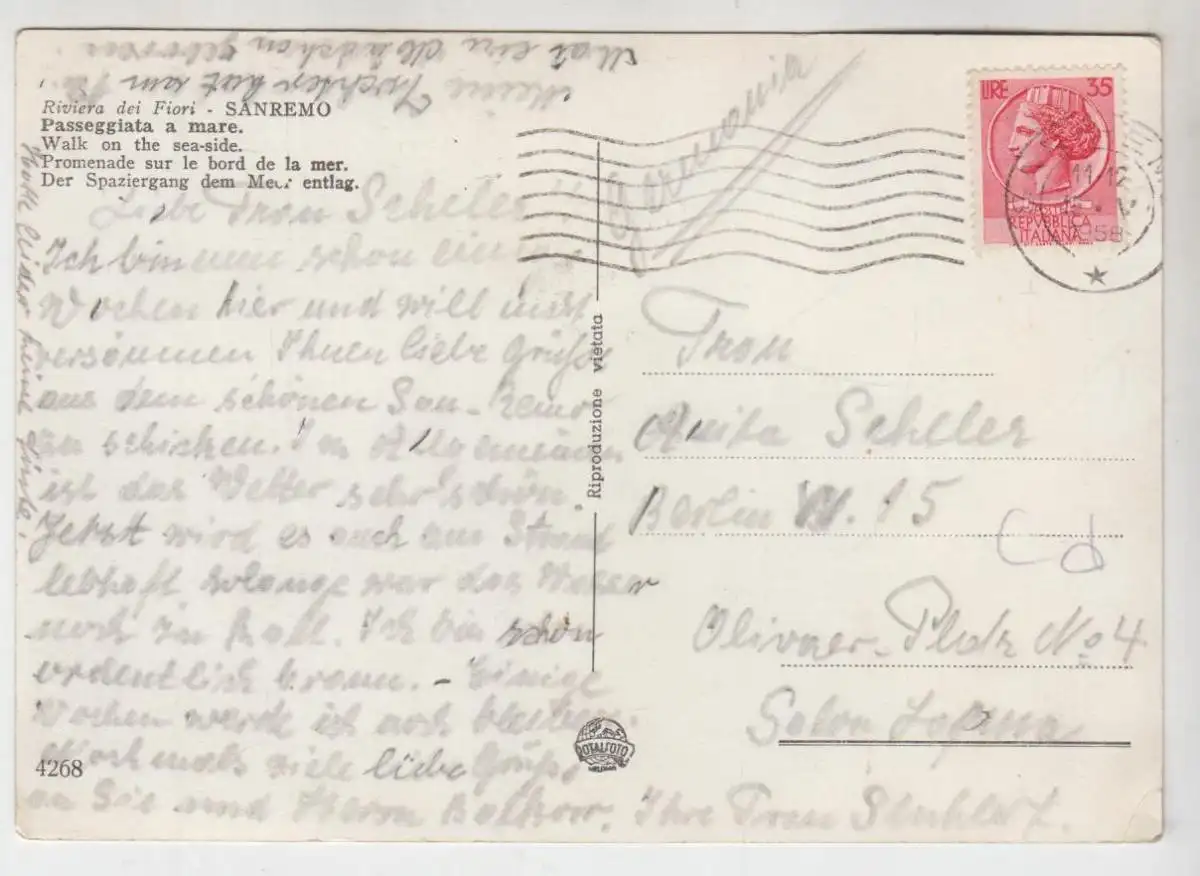 Meine Tochter hat am 12.
Mai ein Mädchen geboren.
Riviera dei Fiori - SANREMO
Passeggiata a mare.
Walk on the sea-side.
Promenade sur le bord de la mer.
Der Spaziergang dem Meer entlag.
Hatte leider keine Tinte.
Liebe Frau Scheler!
Ich bin nun schon einige
Wochen hier und will nicht
versäumen Ihnen liebe Grüße
aus dem schönen San-Remo
zu schicken. Im Allgemeinen
ist das Wetter sehr schön.
Jetzt wird es auch am Strand
lebhaft solange war das Wasser
noch zu kalt. Ich bin schön
ordentlich braun. - Einige
Wochen werde ich noch bleiben.
Nochmals viele liebe Grüße
an Sie und Herrn
Ihre Frau
4268
Riproduzione vietata
ROTALFOTO
Germania
LIRE 35
REPVBBLICA
ITALIANA
11-12
1958
Frau
Anita Scheler
Berlin W. 15
Olivaer-Platz No 4
Salon
Cd